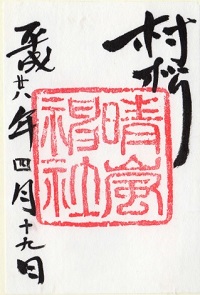 村松
晴嵐
神社
平成廿八年四月十九日